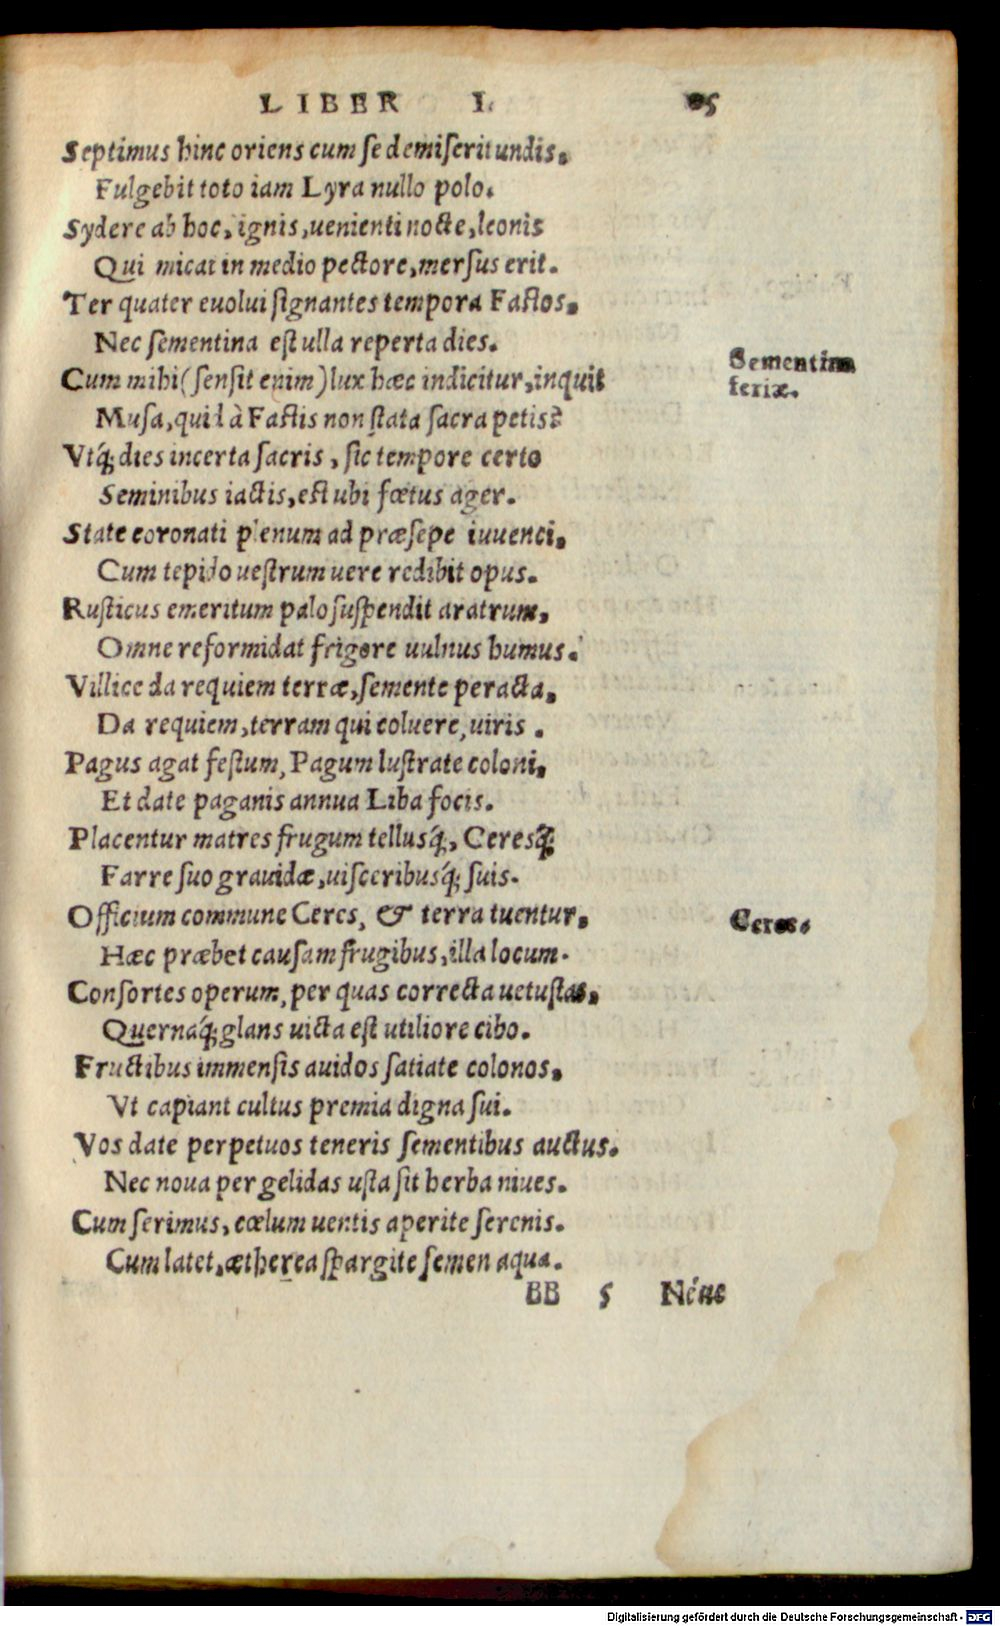 LIBER I. 05
Septimus hinc oriens cum se demiserit undis,
Fulgebit toto iam Lyra nullo polo.
Sydere ab hoc, ignis, uenienti nocte, leonis
Qui micat in medio pectore, mersus erit.
Ter quater euolui signantes tempora Fastos,
Nec sementina est ulla reperta dies.
Cum mihi (sensit enim) lux hæc indicitur, inquit
Sementinæ
feriæ.
Musa, quid à Fastis non stata sacra petis?
Vtq́; dies incerta sacris, sic tempore certo
Seminibus iactis, est ubi fœtus ager.
State coronati plenum ad præsepe iuuenci,
Cum tepido uestrum uere redibit opus.
Rusticus emeritum palo suspendit aratrum,
Omne reformidat frigore uulnus humus.
Villice da requiem terræ, semente peracta,
Da requiem, terram qui coluere, uiris.
Pagus agat festum, Pagum lustrate coloni,
Et date paganis annua Liba focis.
Placentur matres frugum tellusq́;, Ceresq́;
Farre suo grauidæ, uisceribusq́; suis.
Officium commune Ceres, & terra tuentur,
Ceres.
Hæc præbet causam frugibus, illa locum.
Consortes operum, per quas correcta uetustas,
Quernaq́; glans uicta est utiliore cibo.
Fructibus immensis auidos satiate colonos,
Vt capiant cultus premia digna sui.
Vos date perpetuos teneris sementibus auctus.
Nec noua per gelidas usta sit herba niues.
Cum serimus, cœlum uentis aperite serenis.
Cum latet, ætherea spargite semen aqua.
BB 5 Néue
Digitalisierung gefördert durch die Deutsche Forschungsgemeinschaft - DFG